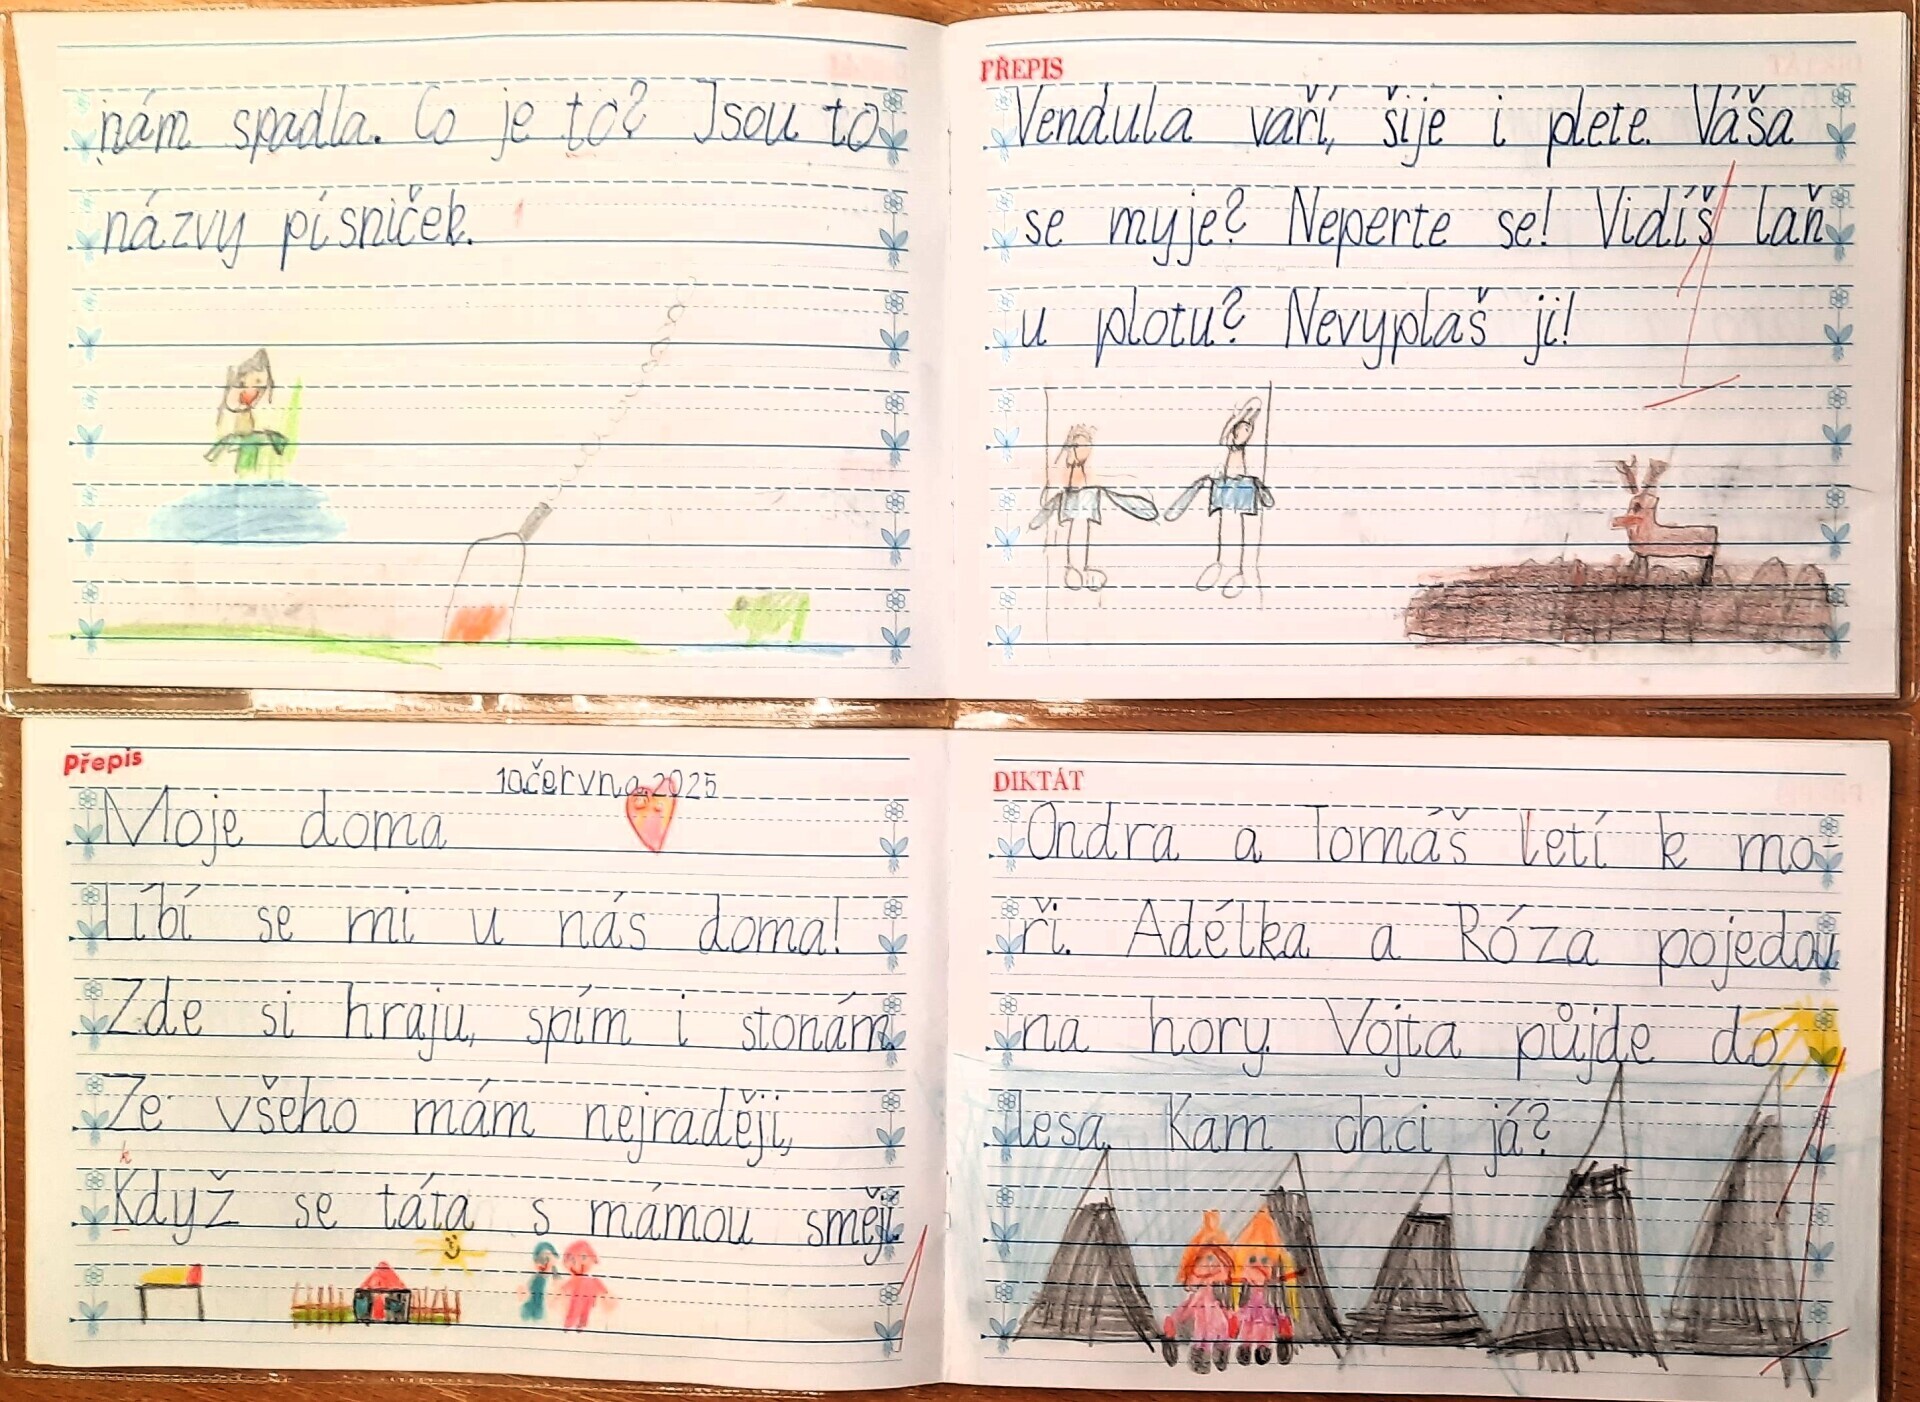 nám spadla. Co je to? Jsou to
názvy písniček.
PŘEPIS
Vendula vaří, šije i plete. Váša
se myje? Neperte se! Vidíš laň
u plotu? Nevyplaš ji!
Přepis
10června.2025
Moje doma
Líbí se mi u nás doma!
Zde si hraju, spím i stonám.
Ze všeho mám nejraději,
k
Když se táta s mámou smějí.
DIKTÁT
Ondra a Tomáš letí k mo-
ři. Adélka a Róza pojedou
na hory. Vojta půjde do
lesa. Kam chci já?